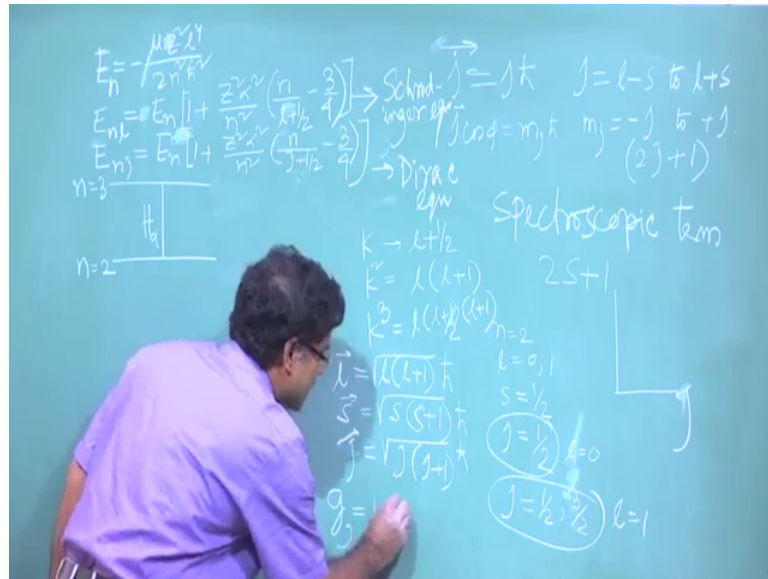 E_n = - μz²e⁴ / 2n²ħ²
E_nl = E_n [1 + z²α²/n² (n/(l+1/2) - 3/4)] → Schrod-inger eqn
E_nj = E_n [1 + z²α²/n² (n/(j+1/2) - 3/4)] → Dirac eqn
j⃗ = jħ J = l-s to l+s
m_j = -J to +J
(2j+1)
n=3
H_α
n=2
Spectroscopic term
2S+1
J
K → l+1/2
K² = l(l+1)
K³ = l(l+1/2)(l+1)
n=2
l = 0, 1
s = 1/2
J = 1/2 l=0
J = 1/2, 3/2 l=1
l⃗ = √l(l+1) ħ
s⃗ = √s(s+1) ħ
j⃗ = √J(J+1) ħ
g_J =